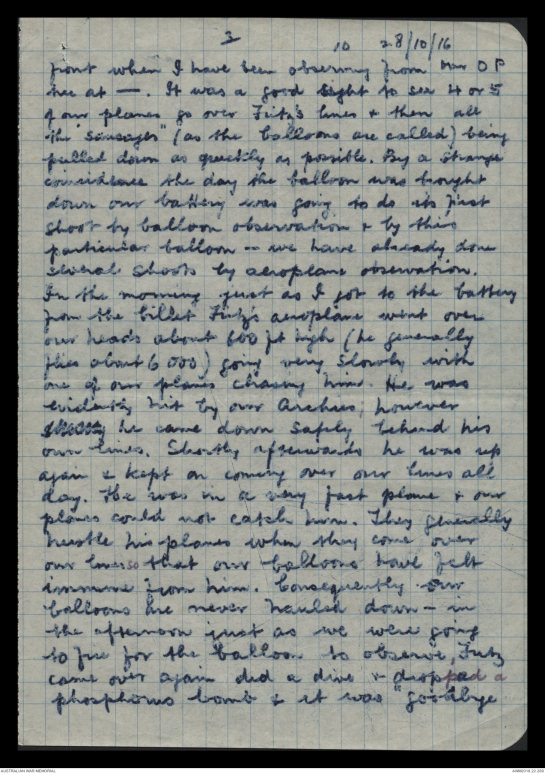 3
10 28/10/16
front when I have been observing from our O P
here at —. It was a good sight to see 4 or 5
of our planes go over Fritz's lines & then all
the "sausages" (as the balloons are called) being
pulled down as quickly as possible. By a strange
coincidence the day the balloon was brought
down our battery was going to do its first
shoot by balloon observation & by this
particular balloon -- we have already done
several shoots by aeroplane observation.
In the morning just as I got to the battery
from the billet Fritz's aeroplane went over
our heads about 600 ft high (he generally
flies about 6 000) going very slowly with
one of our planes chasing him. He was
evidently hit by our Archies, however
he came down safely behind his
own lines. Shortly afterwards he was up
again & kept on coming over our lines all
day. He was in a very fast plane & our
planes could not catch him. They generally
hustle his planes when they come over
our lines so that our balloons have felt
immune from him. Consequently our
balloons are never hauled down — in
the afternoon just as we were going
to fire for the balloon to observe, Fritz
came over again did a dive & dropped a
phosphorus bomb & it was "goodbye
AUSTRALIAN WAR MEMORIAL